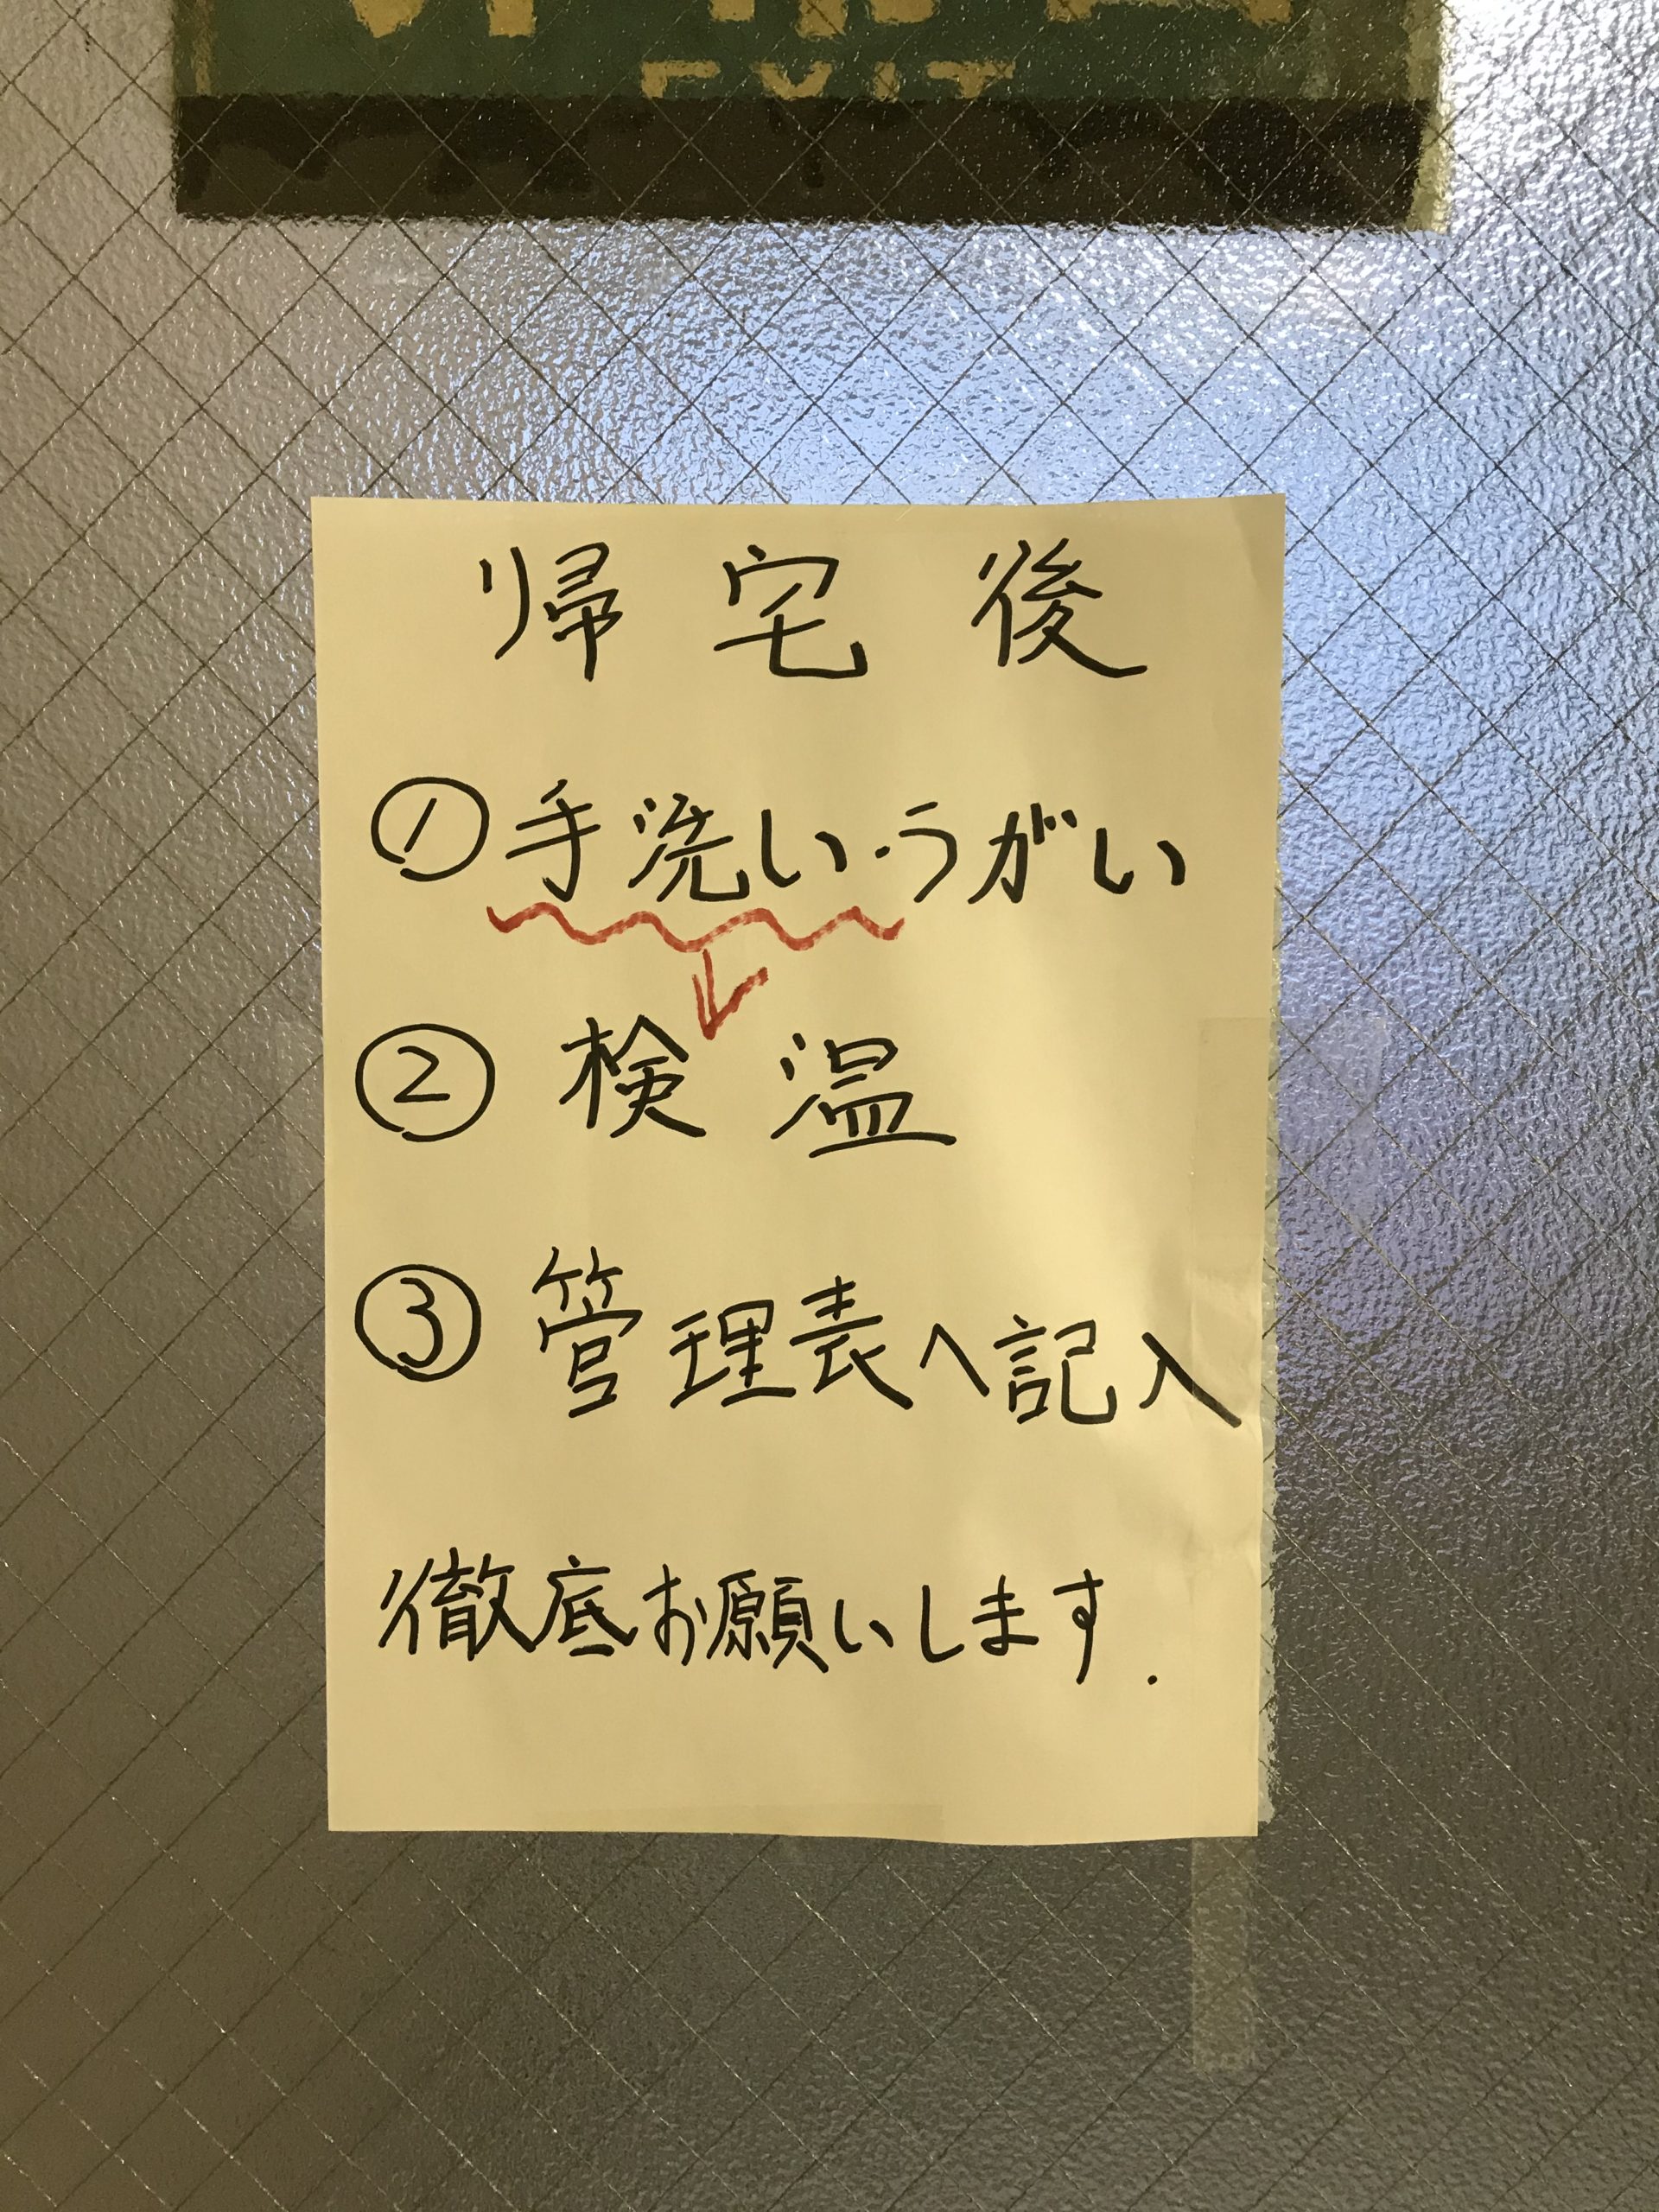 EXIT
帰宅後
①手洗い・うがい
②検温
③管理表へ記入
徹底お願いします.